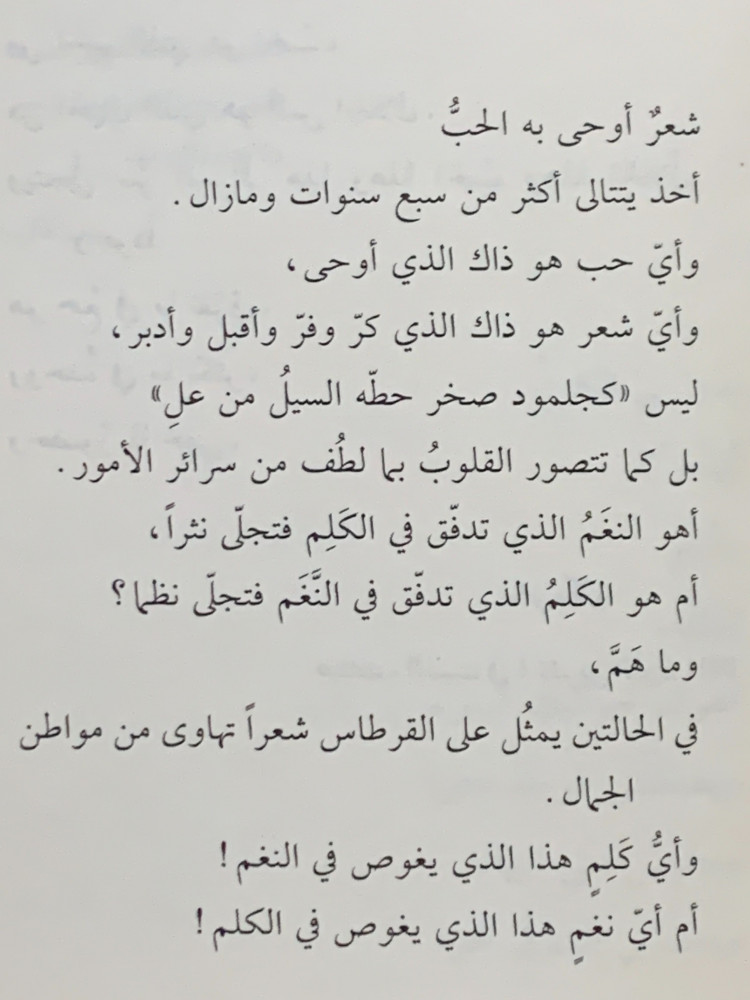 شعرٌ أوحى به الحبُّ
أخذ يتتالى أكثر من سبع سنوات ومازال .
وأيّ حب هو ذاك الذي أوحى ،
وأيّ شعر هو ذاك الذي كرّ وفرّ وأقبل وأدبر ،
ليس «كجلمود صخر حطّه السيلُ من علِ»
بل كما تتصور القلوبُ بما لطُف من سرائر الأمور .
أهو النغَمُ الذي تدفّق في الكَلِم فتجلّى نثراً ،
أم هو الكَلِمُ الذي تدفّق في النَّغَم فتجلّى نظما ؟
وما هَمَّ ،
في الحالتين يمثُل على القرطاس شعراً تهاوى من مواطن
الجمال .
وأيُّ كَلِمٍ هذا الذي يغوص في النغم !
أم أيّ نغمٍ هذا الذي يغوص في الكلم !